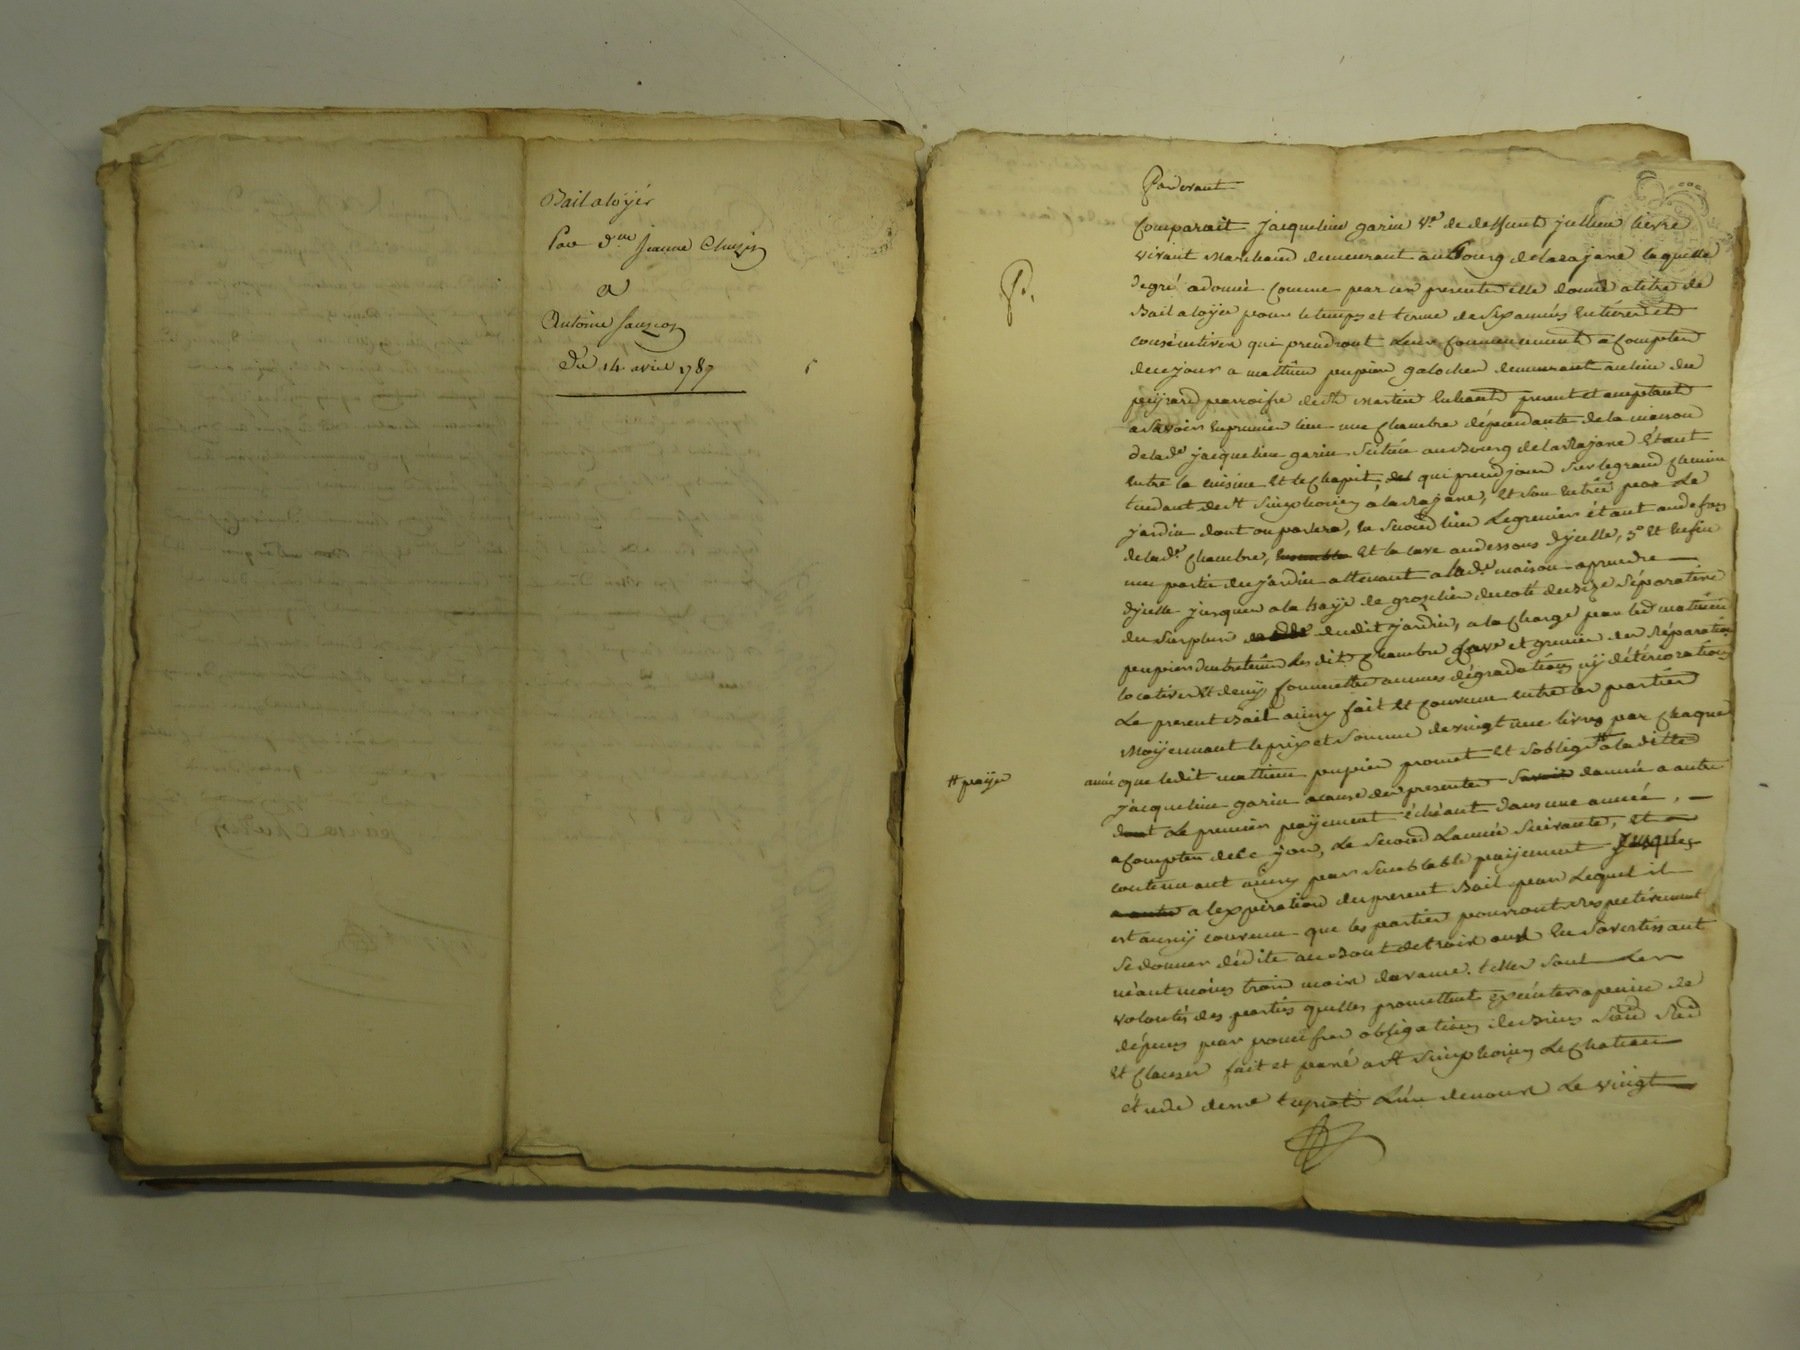 Bail a loÿer
Par d.me Jeanne Chuzin
a
Antoine
du 14 avril 1787
Pardevant
Comparait jacqueline garin V.e de deffunt jullien lievre
vivant marchand demeurant au Bourg de larajane laquelle
de gré a donné comme par ces presentes elle donne a titre de
Bail a loÿer pour le temps et terme de six années entieres et
consécutives qui prendront leur commencement a compter
de ce jour a mathieu pupier galocher demeurant au lieu du
peijrard parroisse de St martin présent et acceptant
a Savoir en premier lieu une chambre dépendante de la maison
de lad.e jacqueline garin Scituée au Bourg de la Rajane étant
entre la cuisine et le chapit, qui prend jour sur le grand chemin
tendant de St Simphorien a la Rajane, et son entrée par le
jardin dont on parlera, en second lieu le grenier étant au
de lad.e chambre, ensemble et la cave au dessous d'jcelle, 3.o et enfin
une partie du jardin attenant a lad.e maison a prendre
d'jcelle jusques a la haÿe de grozelier du coté de bize séparative
du surplus dudit jardin, a la charge par led mathieu
pupier d'entretenir les dit. chambre cave et grenier des réparations
locatives et de n'ÿ commettre aucunes dégradations nÿ détériorations
Le present Bail ainsy fait et convenu entre les parties
moÿennant le prix et somme de vingt une livres par chaque
année que ledit mathieu pupier promet et s'oblige # a la ditte
# païjer
jacqueline garin a cause des presentes savoir d'année a autre
dont le premier paÿement échéant dans une année,
a compter de ce jour, le second l'année suivante, et
continuant ainsy par semblable paijement jusques
a autre a l'expiration du present Bail par lequel il
est aussÿ convenu que les parties pourront respectivement
se donner dédite au bout de trois ans en s'avertissant
néantmoins trois mois d'avance. telles sont les
volontés des parties qu'elles promettent exécuter a peine de
dépens par promesses obligations de biens
et clauses fait et passé a St Simphorien le chateau
étude de me l'un de nous le vingt